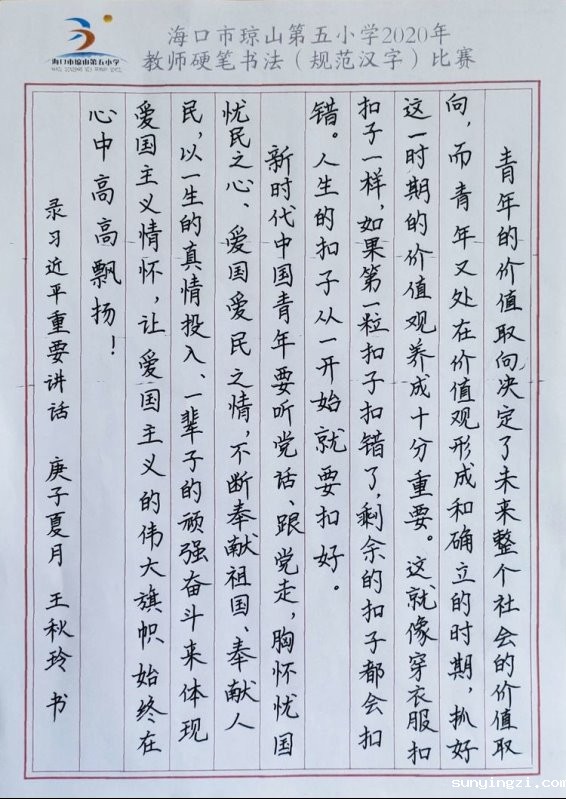 海口市琼山第五小学2020年
教师硬笔书法（规范汉字）比赛
海口市琼山第五小学
青年的价值取向决定了未来整个社会的价值取
向，而青年又处在价值观形成和确立的时期，抓好
这一时期的价值观养成十分重要。这就像穿衣服扣
扣子一样，如果第一粒扣子扣错了，剩余的扣子都会扣
错。人生的扣子从一开始就要扣好。
新时代中国青年要听党话、跟党走，胸怀忧国
忧民之心、爱国爱民之情，不断奉献祖国、奉献人
民，以一生的真情投入、一辈子的顽强奋斗来体现
爱国主义情怀，让爱国主义的伟大旗帜始终在
心中高高飘扬！
录习近平重要讲话 庚子夏月 王秋玲 书
sunyingzi.com